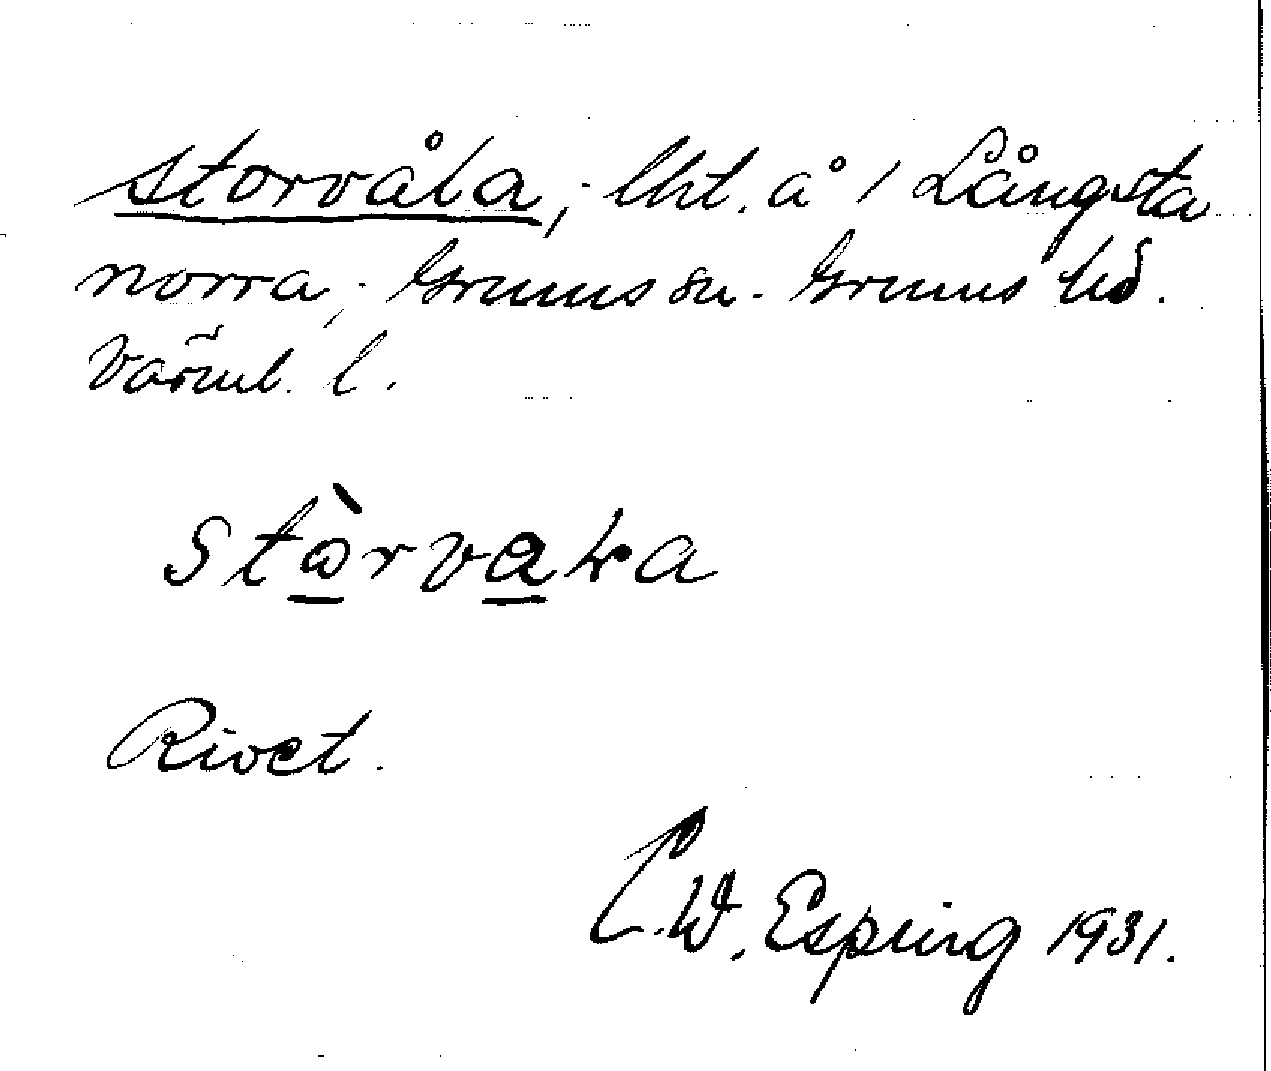 storvåla, lht. å 1 Långsta
norra, Grums sn. Grums hd.
Värml. l.
Rivet.
C. W. Esping 1931.